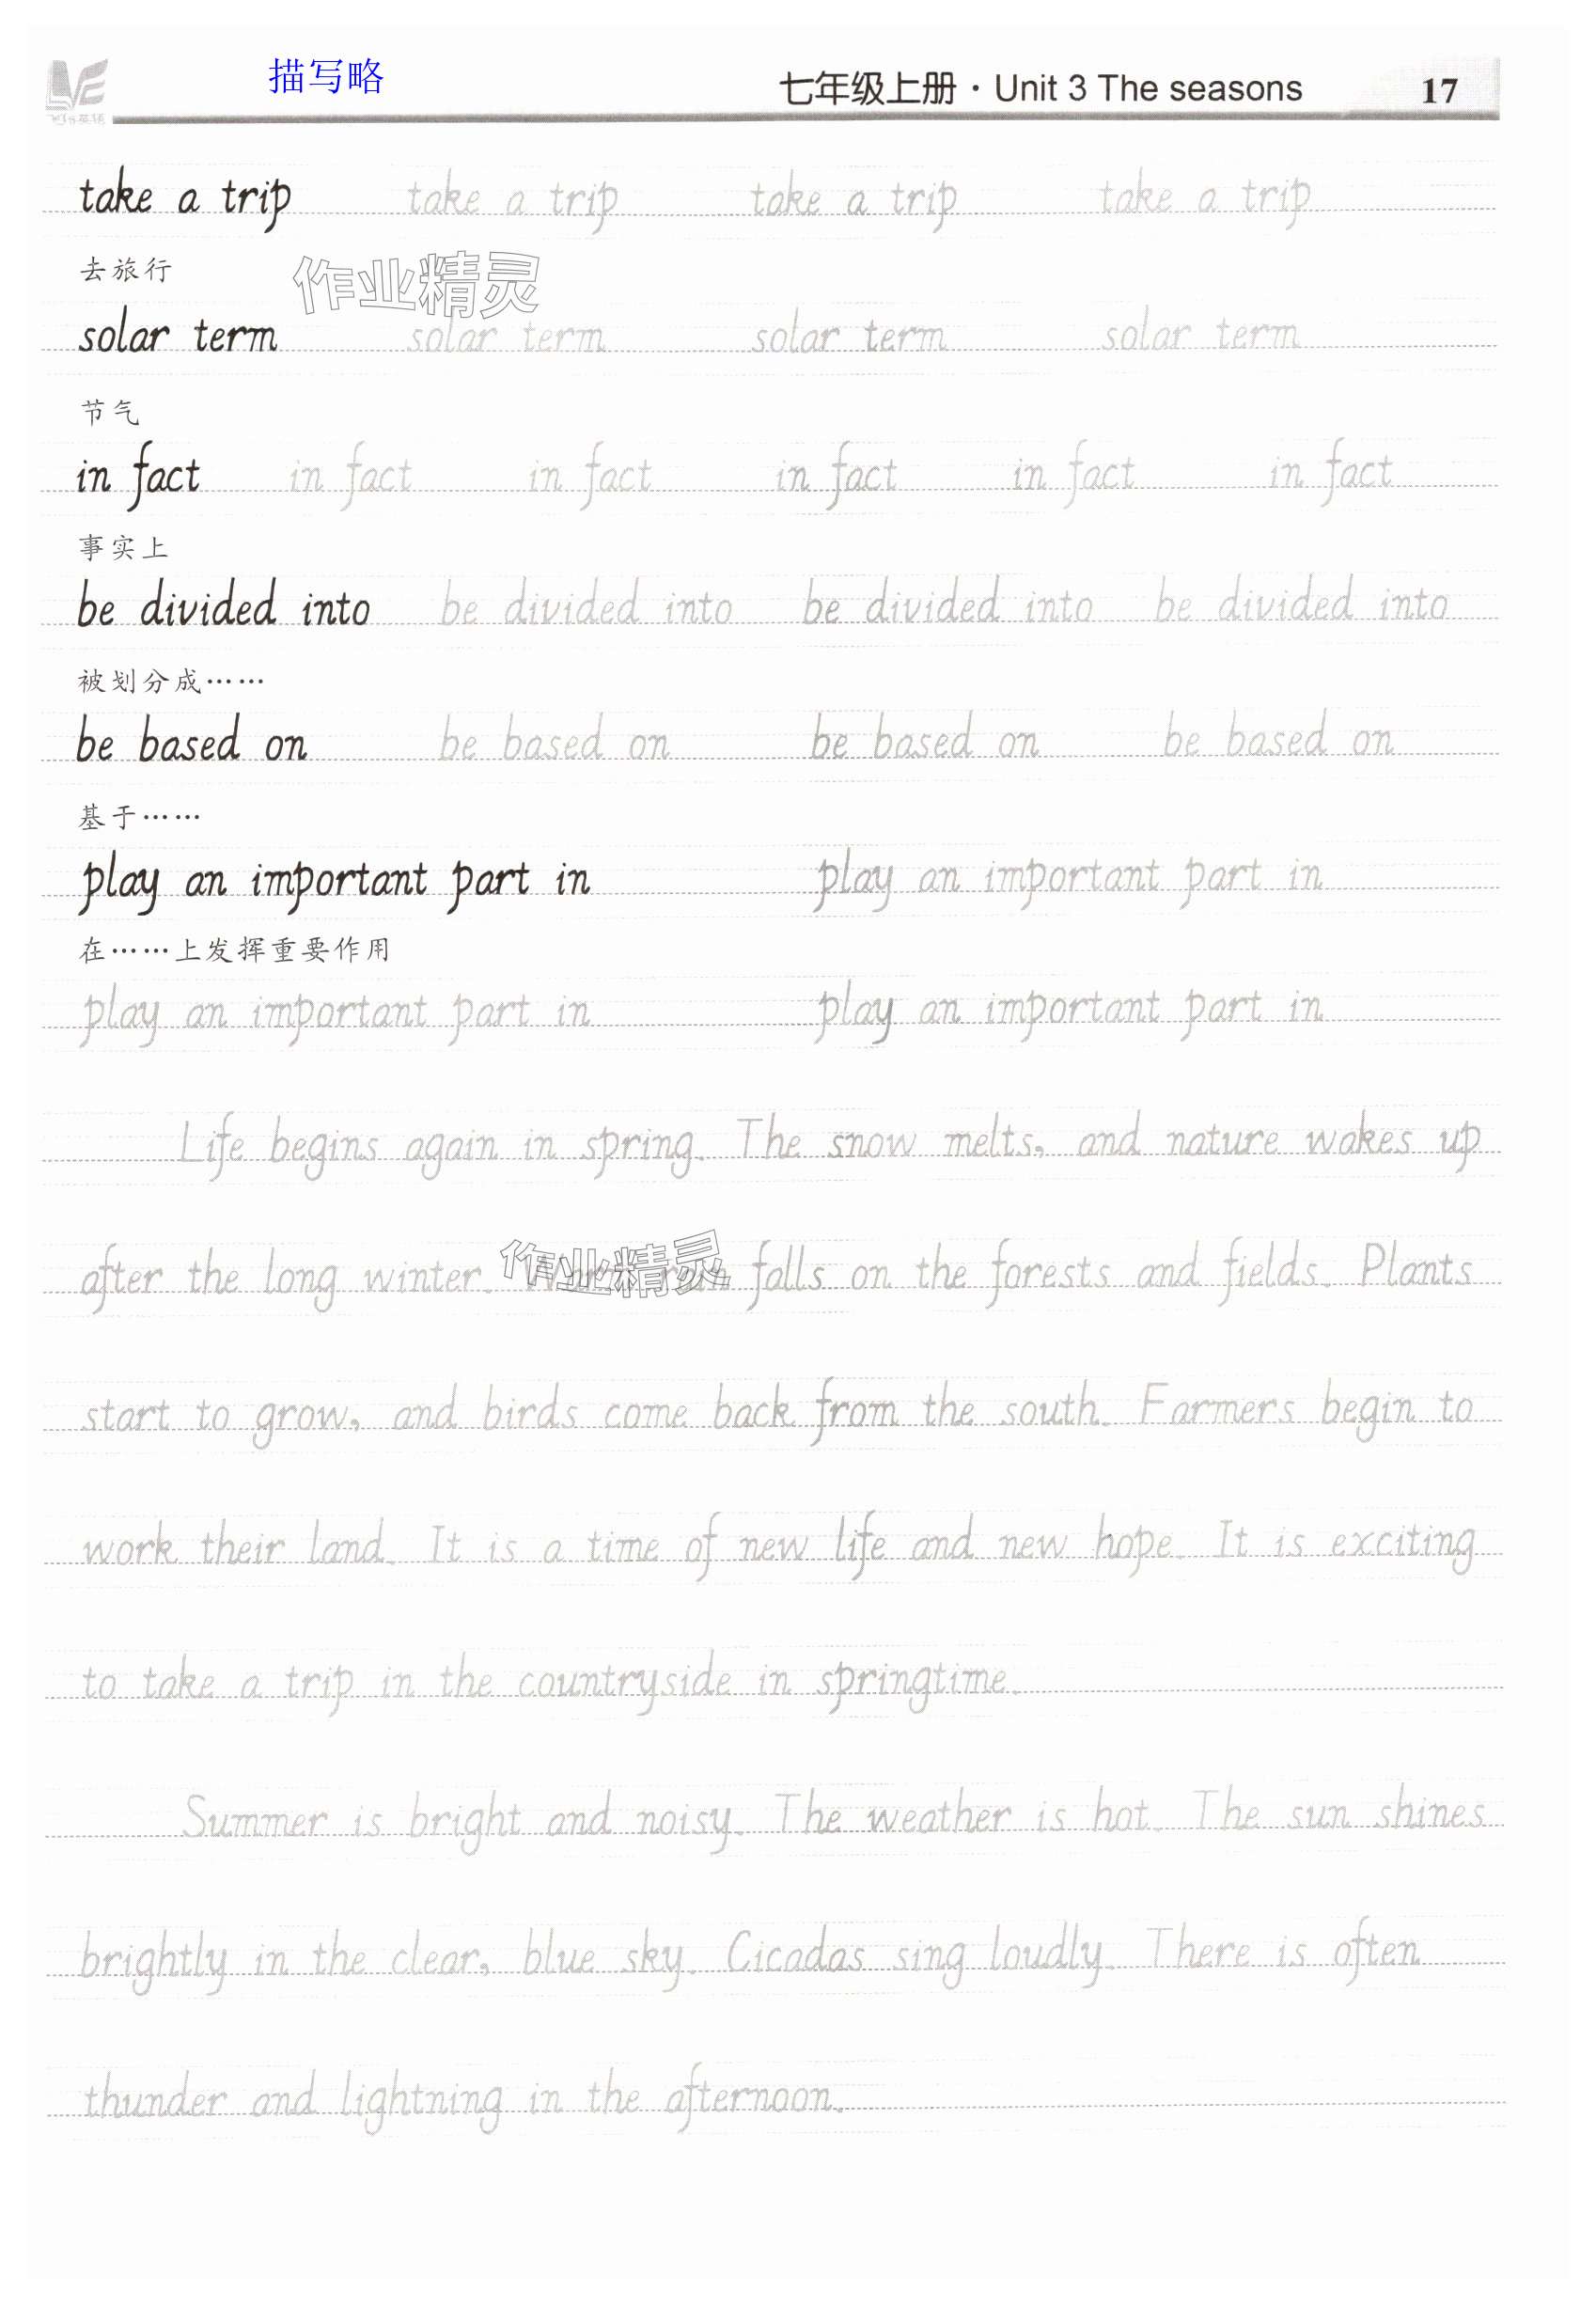 描写略
七年级上册·Unit 3 The seasons 17
take a trip take a trip take a trip take a trip
去旅行
作业精灵
solar term solar term solar term solar term
节气
in fact in fact in fact in fact in fact in fact
事实上
be divided into be divided into be divided into be divided into
被划分成……
be based on be based on be based on be based on
基于……
play an important part in play an important part in
在……上发挥重要作用
play an important part in play an important part in
Life begins again in spring. The snow melts, and nature wakes up
作业精灵
after the long winter. rain falls on the forests and fields. Plants
start to grow, and birds come back from the south. Farmers begin to
work their land. It is a time of new life and new hope. It is exciting
to take a trip in the countryside in springtime.
Summer is bright and noisy. The weather is hot. The sun shines
brightly in the clear, blue sky. Cicadas sing loudly. There is often
thunder and lightning in the afternoon.